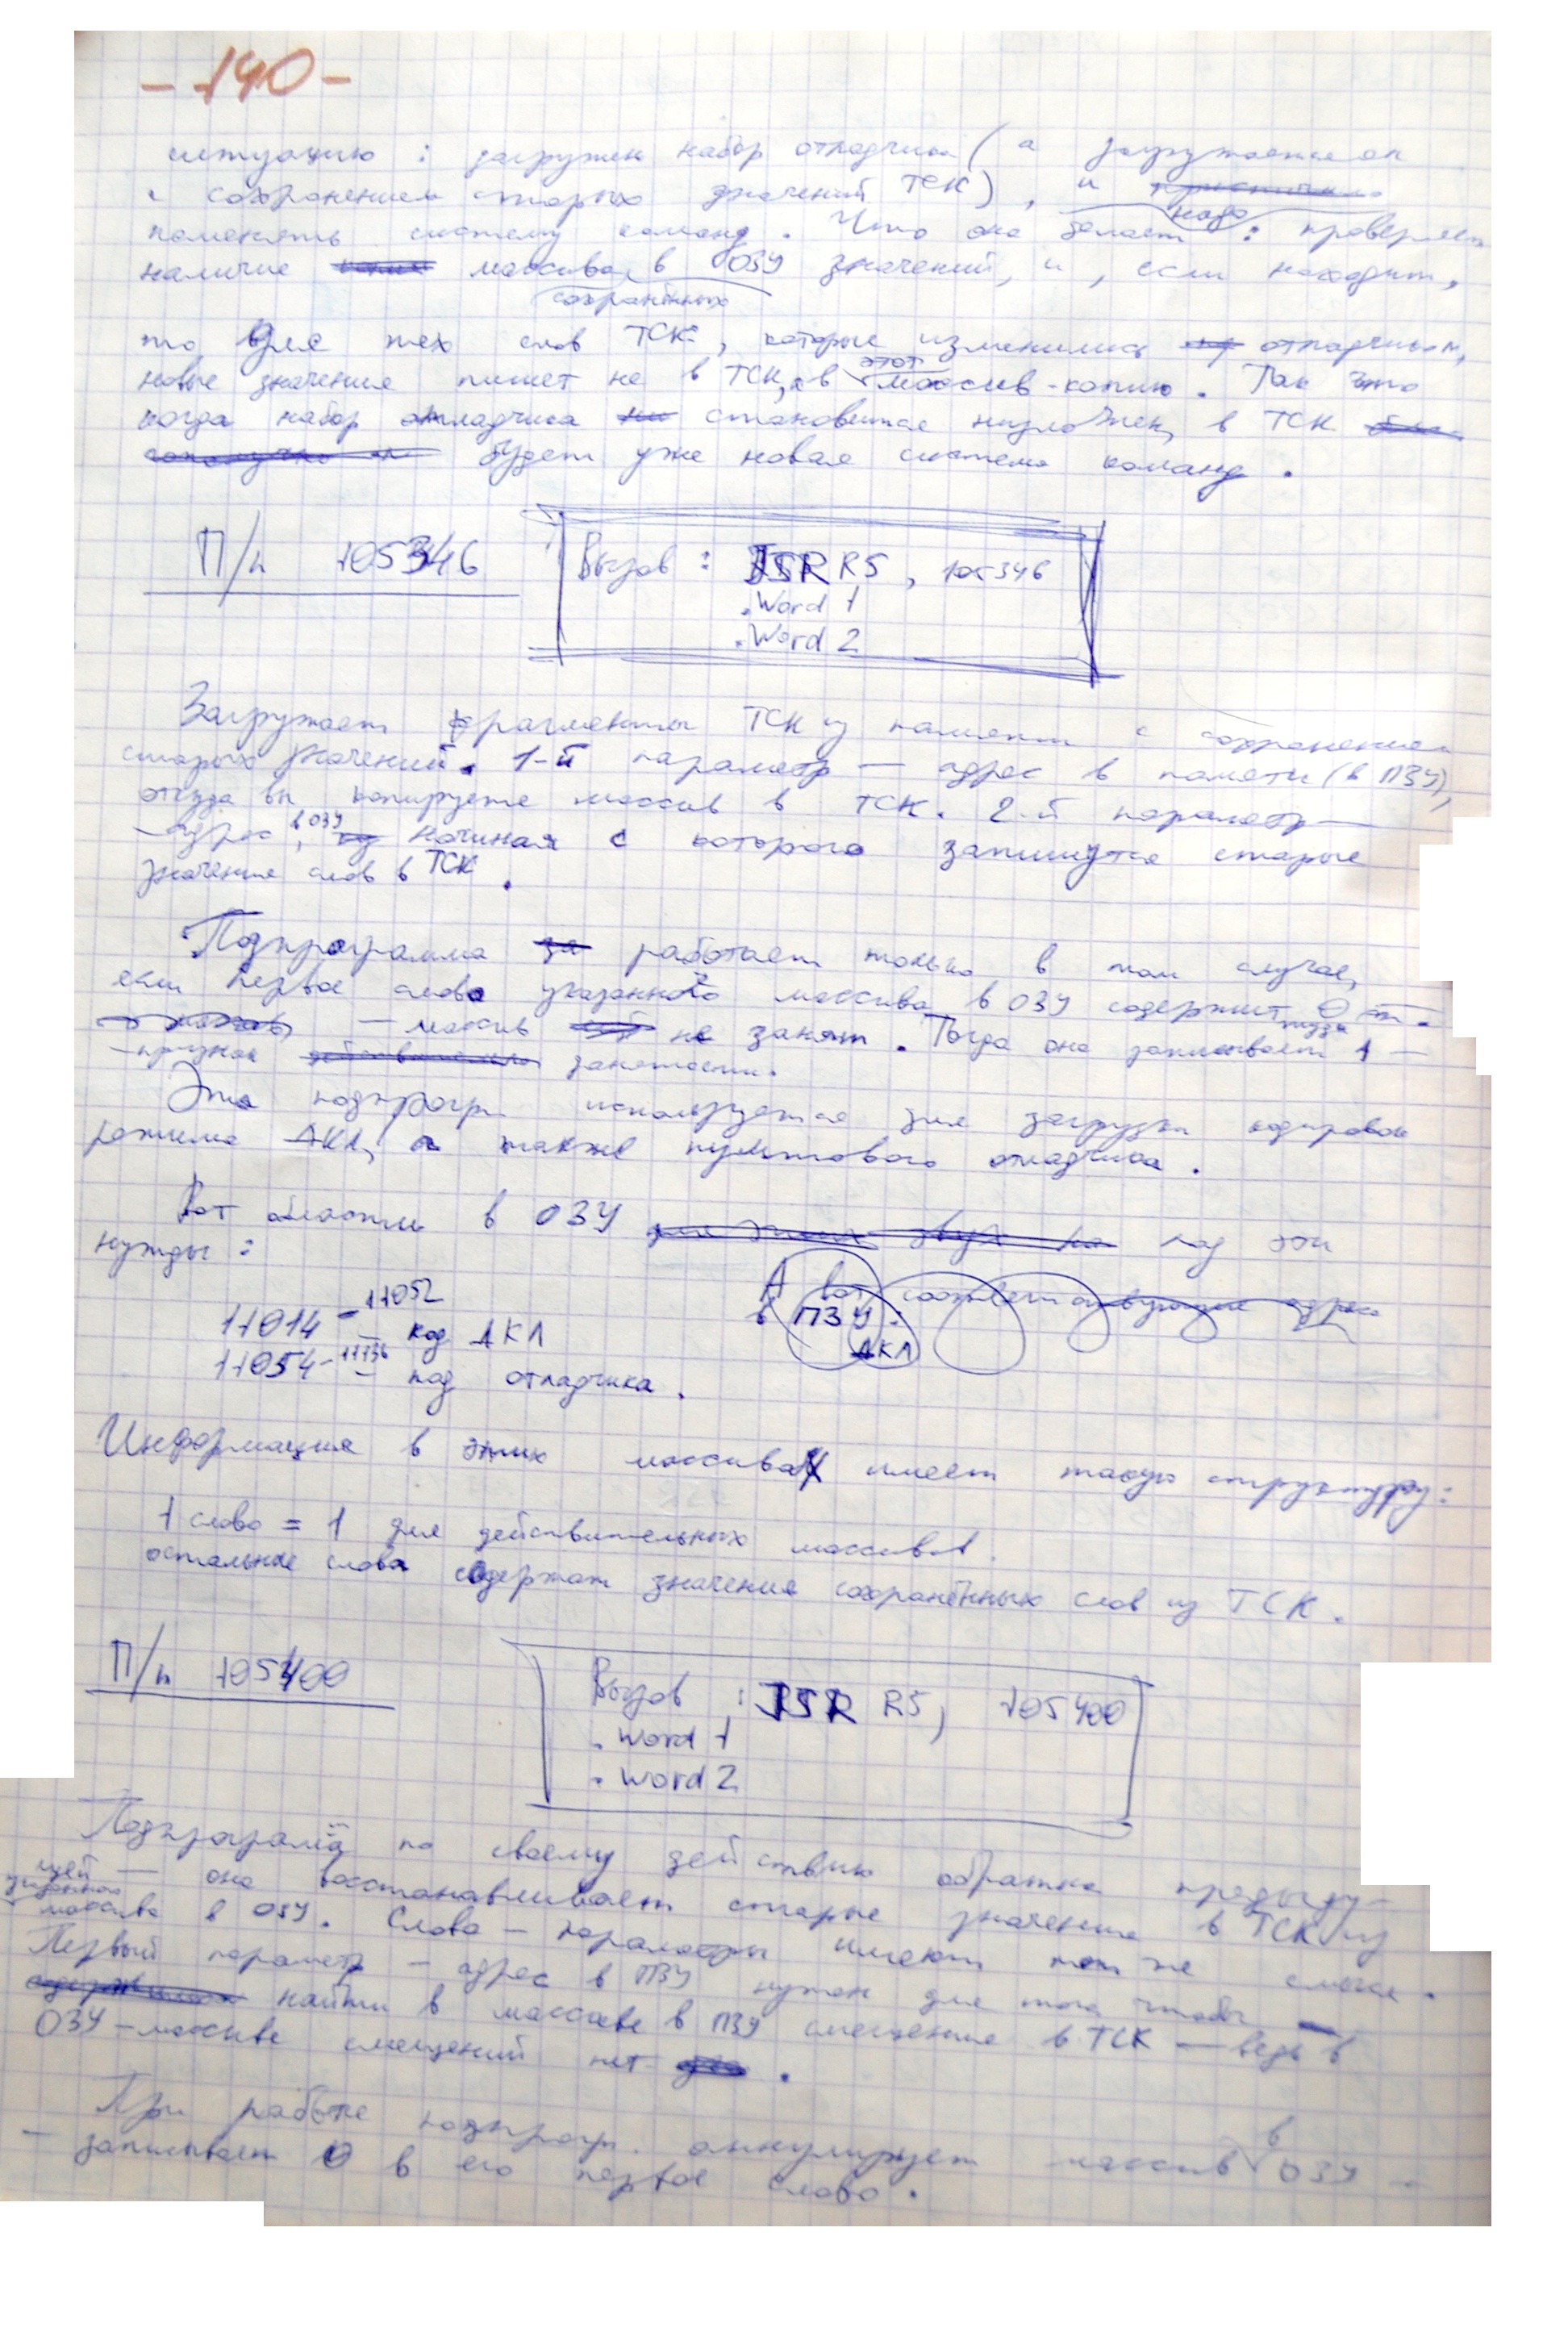 - 140 -
ситуацию : загружен набор отладчика ( а загружается он
с сохранением старых значений ТСК ) , и надо
поменять систему команд . Что она делает : проверяет
наличие массива сохранённых в ОЗУ значений, и , если находит,
то для тех слов ТСК , которые изменились отладчиком,
новые значения пишет не в ТСК, а в этот массив-копию . Так что
когда набор отладчика становится низложен, в ТСК
будет уже новая система команд .
П/п 105346
Вызов : JSR R5 , 105346
.Word 1
.Word 2
Загружает фрагменты ТСК из памяти с сохранением
старых значений . 1-й параметр — адрес в памяти (в ПЗУ),
откуда вы копируете массив в ТСК . 2-й параметр —
- адрес в ОЗУ, начиная с которого запишутся старые
значения слов в ТСК .
Подпрограмма работает только в том случае,
если первое слово указанного массива в ОЗУ содержит 0
— массив не занят . Тогда она записывает туда 1 —
- признак занятости.
Эта подпрогр. используется для загрузки кодировок
режима АКЛ, а также пультового отладчика .
Вот области в ОЗУ под эти
нужды :
А вот соответствующие адреса
в ПЗУ :
АКЛ
11014 - 11052 — код АКЛ
11054 - 11136 — под отладчика .
Информация в этих массивах имеет такую структуру :
1 слово = 1 для действительных массивов.
остальные слова содержат значения сохранённых слов из ТСК .
П/п 105400
Вызов : JSR R5, 105400
. Word 1
. Word 2
Подпрограмма по своему действию обратна предыду-
щей — она восстанавливает старые значения в ТСК из
указанного массива в ОЗУ . Слова - параметры имеют тот же смысл .
Первый параметр - адрес в ПЗУ нужен для того чтобы
найти в массиве в ПЗУ смещение в ТСК — ведь в
ОЗУ - массиве смещений нет .
При работе подпрогр. аннулирует массив в ОЗУ -
- записывает 0 в его первое слово .